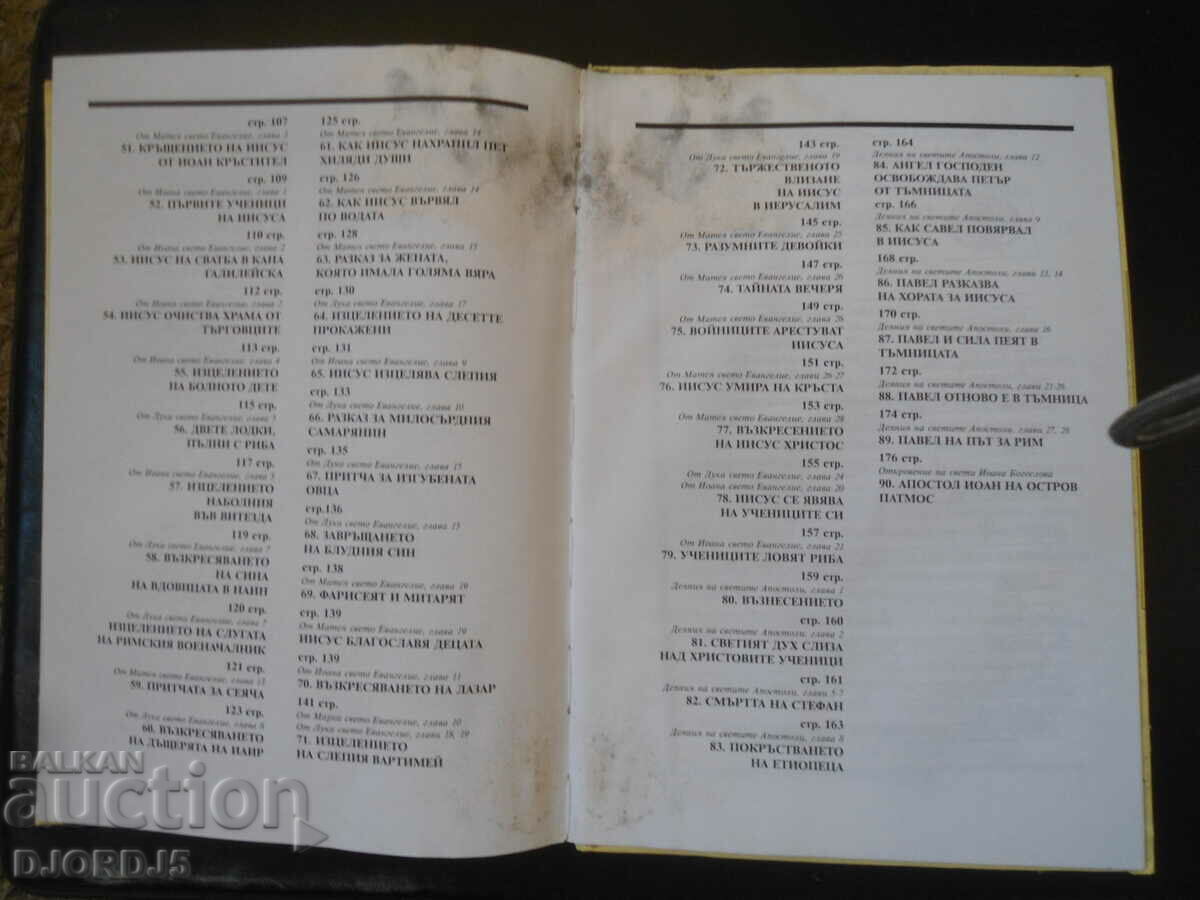 стр. 107
От Матея свето Евангелие, глава 3
51. КРЪЩЕНИЕТО НА ИИСУС
ОТ ИОАН КРЪСТИТЕЛ
стр. 109
От Иоана свето Евангелие, глава 1
52. ПЪРВИТЕ УЧЕНИЦИ
НА ИИСУСА
110 стр.
От Иоана свето Евангелие, глава 2
53. ИИСУС НА СВАТБА В КАНА
ГАЛИЛЕЙСКА
112 стр.
От Иоана свето Евангелие, глава 2
54. ИИСУС ОЧИСТВА ХРАМА ОТ
ТЪРГОВЦИТЕ
113 стр.
От Иоана свето Евангелие, глава 4
55. ИЗЦЕЛЕНИЕТО
НА БОЛНОТО ДЕТЕ
115 стр.
От Лука свето Евангелие, глава 5
56. ДВЕТЕ ЛОДКИ,
ПЪЛНИ С РИБА
117 стр.
От Иоана свето Евангелие, глава 5
57. ИЗЦЕЛЕНИЕТО
НАБОЛНИЯ
ВЪВ ВИТЕЗДА
119 стр.
От Лука свето Евангелие, глава 7
58. ВЪЗКРЕСЯВАНЕТО
НА СИНА
НА ВДОВИЦАТА В НАИН
120 стр.
От Лука свето Евангелие, глава 7
ИЗЦЕЛЕНИЕТО НА СЛУГАТА
НА РИМСКИЯ ВОЕНАЧАЛНИК
121 стр.
От Матея свето Евангелие, глава 13
59. ПРИТЧАТА ЗА СЕЯЧА
123 стр.
От Лука свето Евангелие, глава 8
60. ВЪЗКРЕСЯВАНЕТО
НА ДЪЩЕРЯТА НА ИАИР
125 стр.
От Матея свето Евангелие, глава 14
61. КАК ИИСУС НАХРАНИЛ ПЕТ
ХИЛЯДИ ДУШИ
стр. 126
От Матея свето Евангелие, глава 14
62. КАК ИИСУС ВЪРВЯЛ
ПО ВОДАТА
стр. 128
От Матея свето Евангелие, глава 15
63. РАЗКАЗ ЗА ЖЕНАТА,
КОЯТО ИМАЛА ГОЛЯМА ВЯРА
стр. 130
От Лука свето Евангелие, глава 17
64. ИЗЦЕЛЕНИЕТО НА ДЕСЕТТЕ
ПРОКАЖЕНИ
стр. 131
От Иоана свето Евангелие, глава 9
65. ИИСУС ИЗЦЕЛЯВА СЛЕПИЯ
стр. 133
От Лука свето Евангелие, глава 10
66. РАЗКАЗ ЗА МИЛОСЪРДНИЯ
САМАРЯНИН
стр. 135
От Лука свето Евангелие, глава 15
67. ПРИТЧА ЗА ИЗГУБЕНАТА
ОВЦА
стр.136
От Лука свето Евангелие, глава 15
68. ЗАВРЪЩАНЕТО
НА БЛУДНИЯ СИН
стр. 138
От Матея свето Евангелие, глава 19
69. ФАРИСЕЯТ И МИТАРЯТ
стр. 139
От Матея свето Евангелие, глава 19
ИИСУС БЛАГОСЛАВЯ ДЕЦАТА
стр. 139
От Иоана свето Евангелие, глава 11
70. ВЪЗКРЕСЯВАНЕТО НА ЛАЗАР
141 стр.
От Марка свето Евангелие, глава 10
От Лука свето Евангелие, глави 18, 19
71. ИЗЦЕЛЕНИЕТО
НА СЛЕПИЯ ВАРТИМЕЙ
143 стр.
От Лука свето Евангелие, глава 19
72. ТЪРЖЕСТВЕНОТО
ВЛИЗАНЕ
НА ИИСУС
В ИЕРУСАЛИМ
145 стр.
От Матея свето Евангелие, глава 25
73. РАЗУМНИТЕ ДЕВОЙКИ
147 стр.
От Матея свето Евангелие, глава 26
74. ТАЙНАТА ВЕЧЕРЯ
149 стр.
От Матея свето Евангелие, глава 26
75. ВОЙНИЦИТЕ АРЕСТУВАТ
ИИСУСА
151 стр.
От Матея свето Евангелие, глави 26-27
76. ИИСУС УМИРА НА КРЪСТА
153 стр.
От Матея свето Евангелие, глава 28
77. ВЪЗКРЕСЕНИЕТО
НА ИИСУС ХРИСТОС
155 стр.
От Лука свето Евангелие, глава 24
От Иоана свето Евангелие, глава 20
78. ИИСУС СЕ ЯВЯВА
НА УЧЕНИЦИТЕ СИ
157 стр.
От Иоана свето Евангелие, глава 21
79. УЧЕНИЦИТЕ ЛОВЯТ РИБА
159 стр.
Деяния на светите Апостоли, глава 1
80. ВЪЗНЕСЕНИЕТО
стр. 160
Деяния на светите Апостоли, глава 2
81. СВЕТИЯТ ДУХ СЛИЗА
НАД ХРИСТОВИТЕ УЧЕНИЦИ
стр. 161
Деяния на светите Апостоли, глави 5-7
82. СМЪРТТА НА СТЕФАН
стр. 163
Деяния на светите Апостоли, глава 8
83. ПОКРЪСТВАНЕТО
НА ЕТИОПЕЦА
стр. 164
Деяния на светите Апостоли, глава 12
84. АНГЕЛ ГОСПОДЕН
ОСВОБОЖДАВА ПЕТЪР
ОТ ТЪМНИЦАТА
стр. 166
Деяния на светите Апостоли, глава 9
85. КАК САВЕЛ ПОВЯРВАЛ
В ИИСУСА
168 стр.
Деяния на светите Апостоли, глави 13, 14
86. ПАВЕЛ РАЗКАЗВА
НА ХОРАТА ЗА ИИСУСА
170 стр.
Деяния на светите Апостоли, глава 16
87. ПАВЕЛ И СИЛА ПЕЯТ В
ТЪМНИЦАТА
172 стр.
Деяния на светите Апостоли, глави 21-26
88. ПАВЕЛ ОТНОВО Е В ТЪМНИЦА
174 стр.
Деяния на светите Апостоли, глави 27, 28
89. ПАВЕЛ НА ПЪТ ЗА РИМ
176 стр.
Откровение на свети Иоана Богослова
90. АПОСТОЛ ИОАН НА ОСТРОВ
ПАТМОС
BALKAN
auction
DJORDJ5